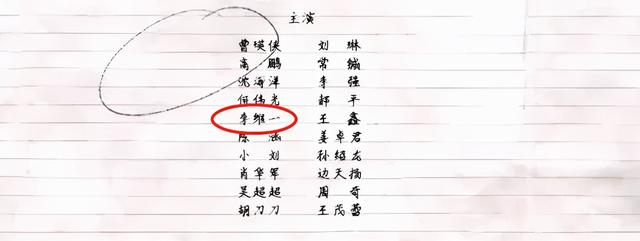 主演
曹瑛侠 刘琳
高鹏 常铖
沈海洋 李强
伟光 郜平
李维一 王鑫
陈涵 姜卓君
小刘 孙绍龙
肖华军 边天扬
吴超超 周奇
胡刀刀 王茂蕾